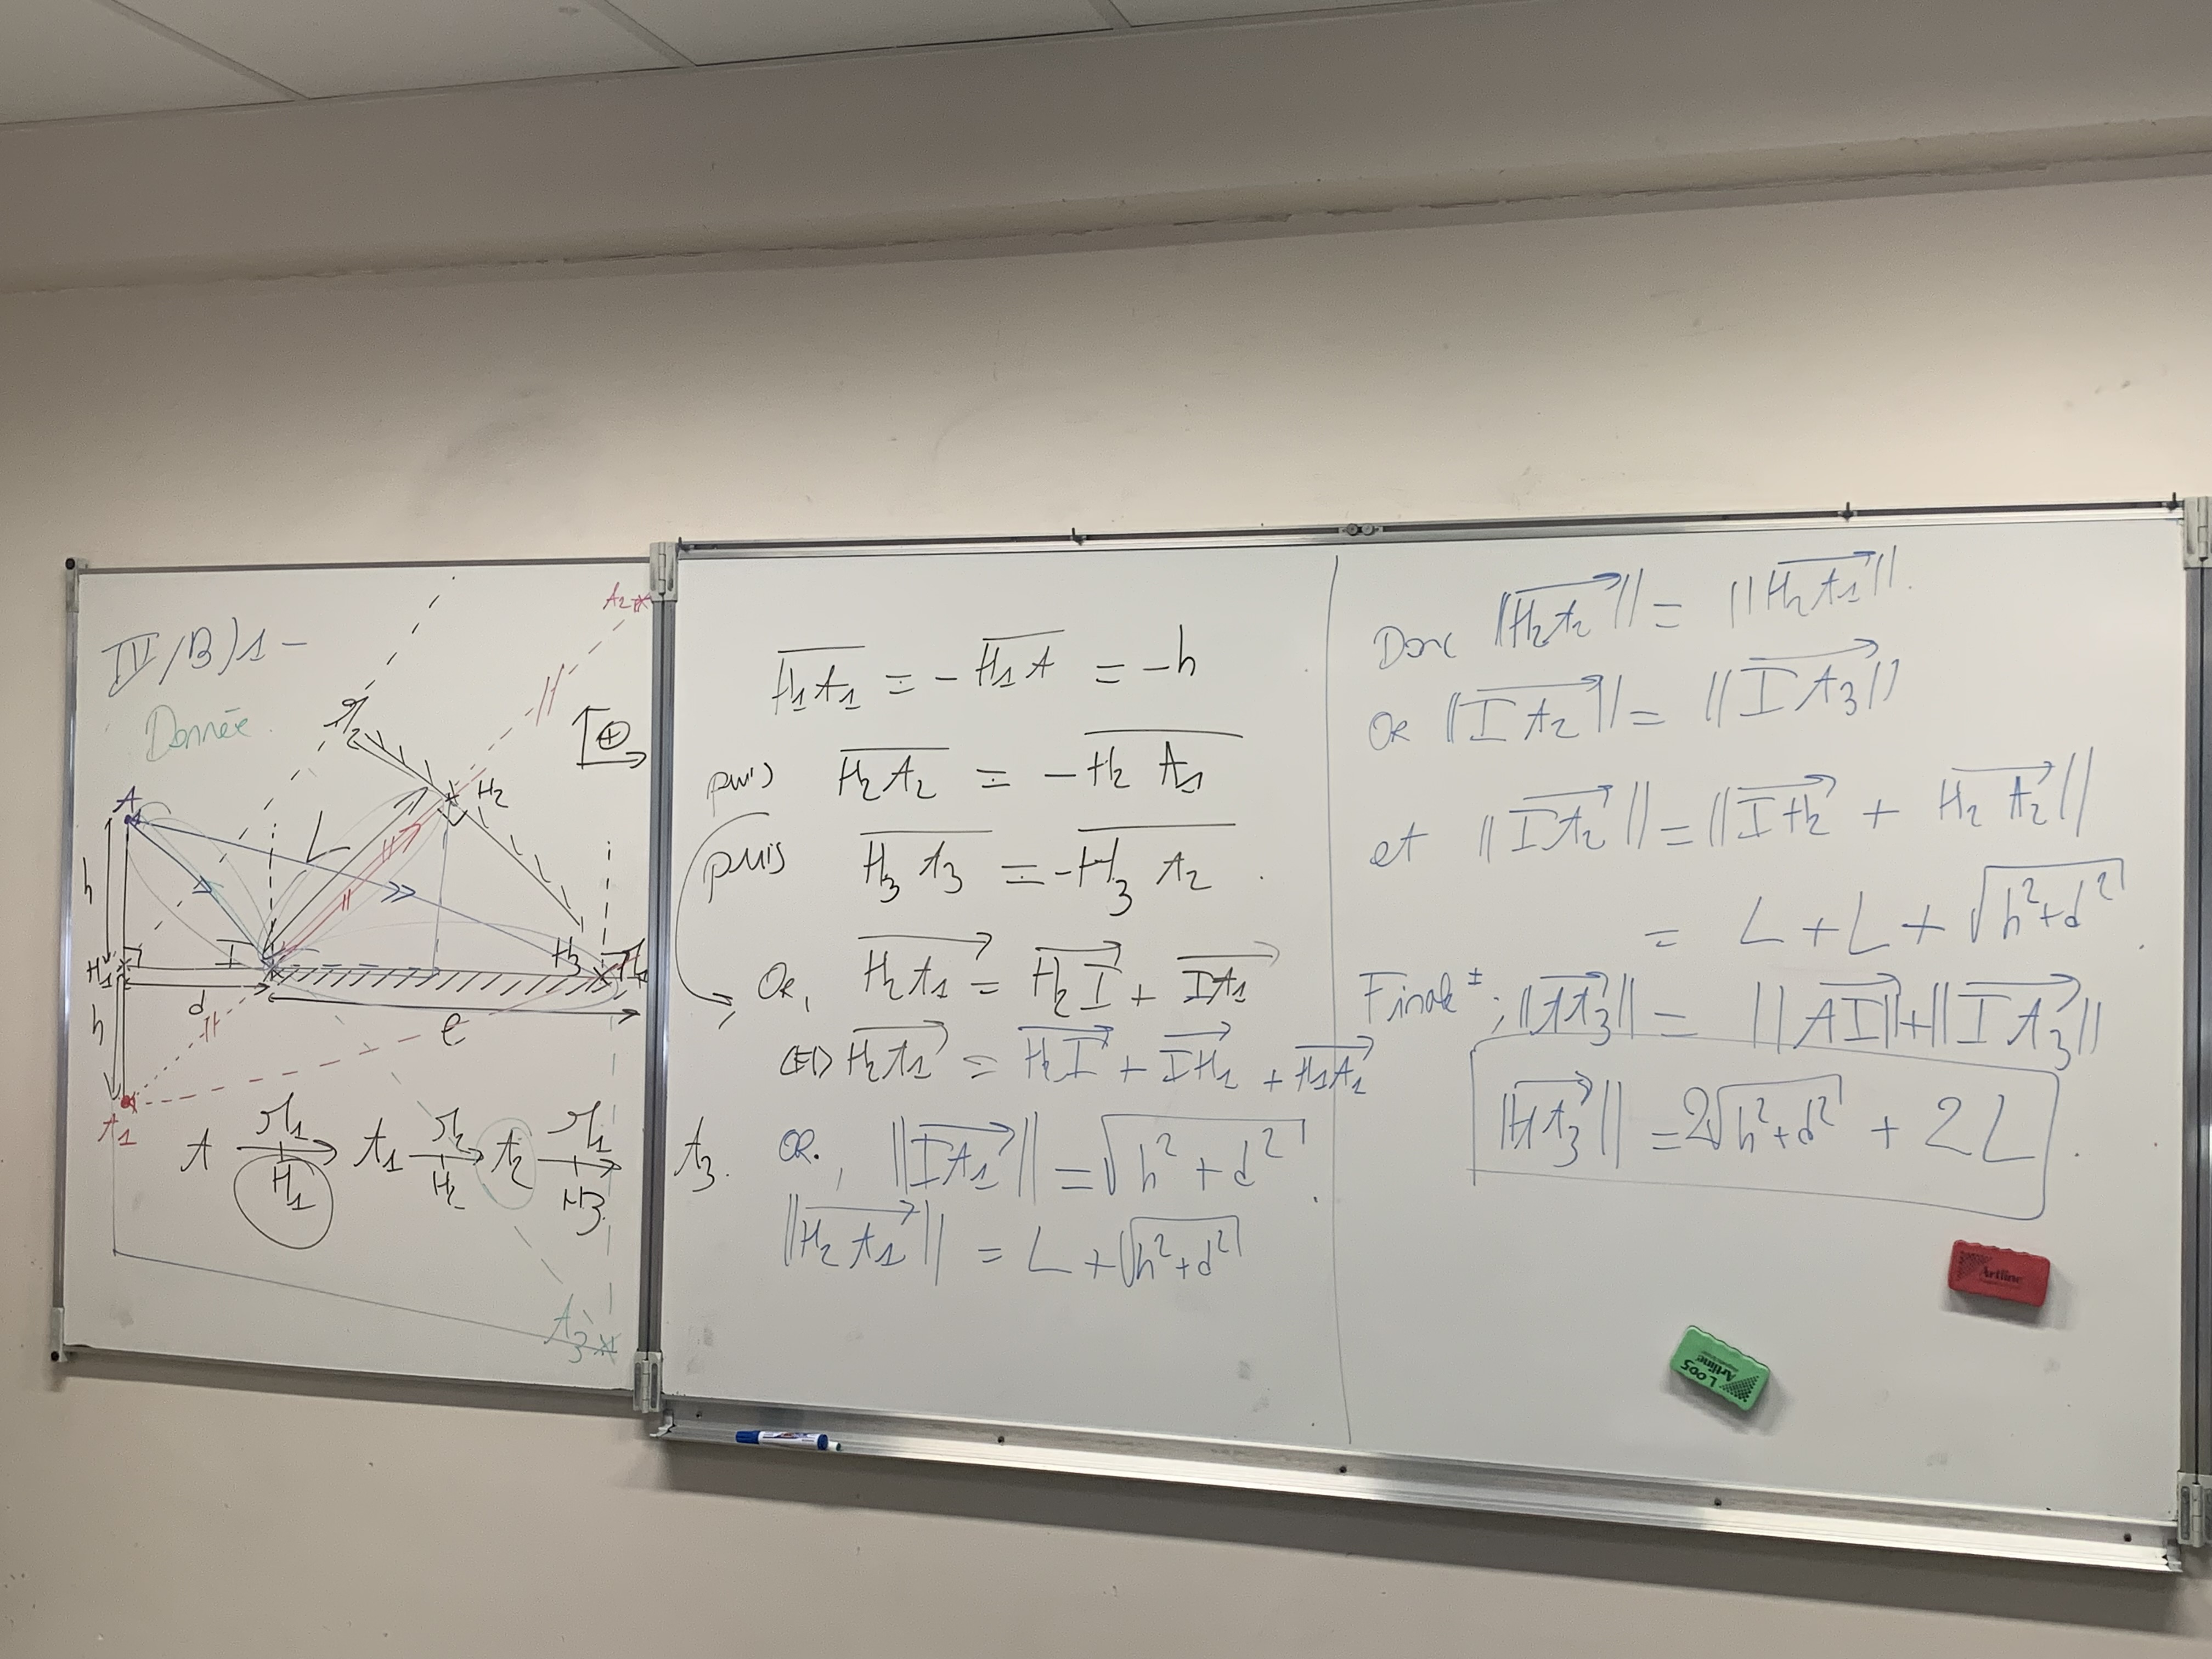 IV/B)1-
Donnée
A2
M2
H2
⊕
A
L
h
H1
I
H3
M1
d
e
h
A1
A M1→ H1 A1 M2→ H2 A2 M1→ H3 A3.
A3
H1A1 = - H1A = -h
puis H2A2 = - H2 A1
puis H3 A3 = - H3 A2 .
Or, H2A1 = H2I + IA1
H2A1 = H2I + IH1 + H1A1
OR, ||IA1|| = √h²+d² .
||H2A1|| = L + √h²+d²
Donc ||H2A2|| = ||H2A1||.
OR ||IA2|| = ||IA3||
et ||IA2|| = ||IH2 + H2A2||
= L + L + √h²+d² .
Final t ; ||AA3|| = ||AI|| + ||IA3||
||AA3|| = 2√h²+d² + 2L .
Artline
Artline